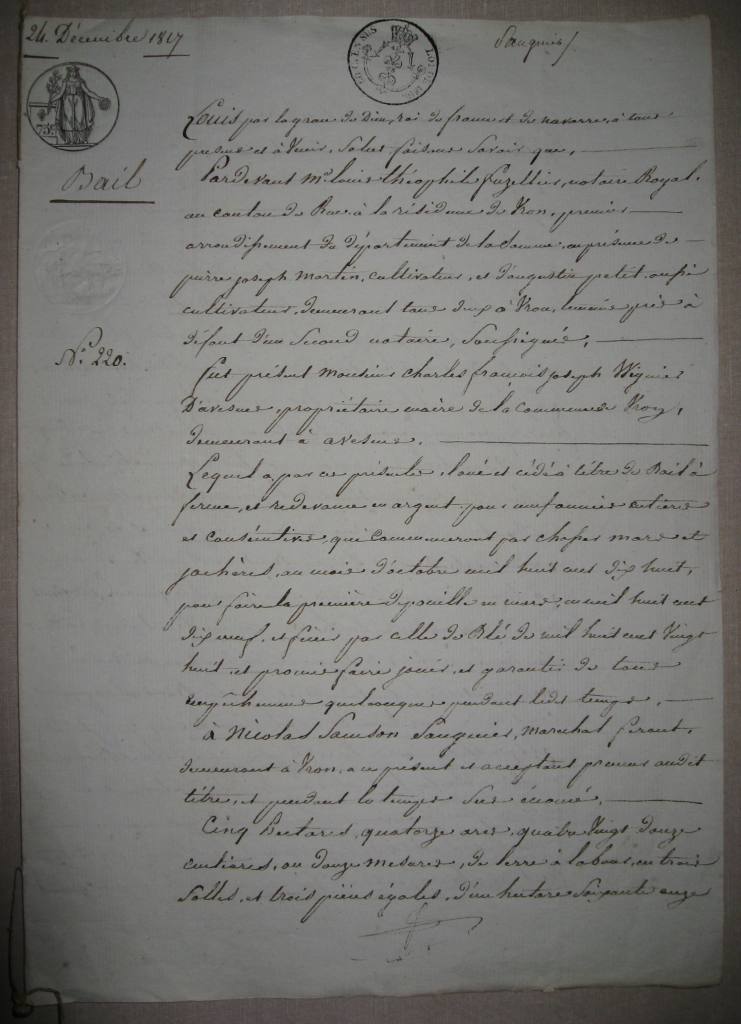 24. Décembre 1817
Sauquier
75c
Bail
N.º 220.
Louis par la grace de Dieu, roi de france et de navarre, à tous
presens et à Venir, Salut faisons Savoir que,
Pardevant Me. louis théophile Fuzellier, notaire Royal,
au canton de Rue à la résidence de Vron, premier
arrondissement du département de la Somme, en présence de
pierre joseph Martin, cultivateur, et d'augustin petit, aussi
cultivateur, demeurant tous deux à Vron, temoins pris à
défaut d'un Second notaire, Soussignés,
Fut présent Monsieur charles françois joseph Wignier
D'avesnes, propriétaire maire de la Commune de Vron,
demeurant à avesne.
Lequel a, par ces présentes, loué et cédé à titre de Bail à
ferme, et redevance en argent, pour années entières
et consécutives, qui Commenceront par chapes mars et
jachères, au mois d'octobre mil huit cent dix huit,
pour faire la première depouille en mars, en mil huit cent
dix neuf, et finir par celle de Blé de mil huit cent Vingt
huit, et promis faire jouir, et garantir de tous
empêchemens quelconques pendant ledit temps.
à Nicolas Samson Sauquier, Marechal ferant,
demeurant à Vron, a ce présent et acceptant preneur audit
titre, et pendant le temps Sus énoncé.
Cinq hectares, quatorze ares, quatre Vingt douze
centiares, ou douze mesures, de terre à labour, en trois
Solles, et trois pièces égales, d'un hectare Soixante onze